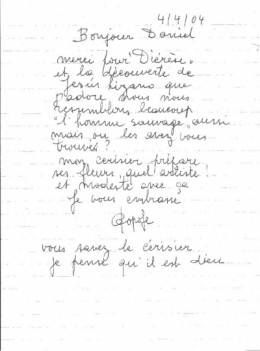 4/4/04
Bonjour Daniel
merci pour "Diérèse"
et la découverte de
Jesús Lizano que
j'adore nous nous
ressemblons beaucoup
"l'homme sauvage" aussi
mais où les avez vous
trouvés ?
mon cerisier prépare
ses fleurs quel artiste !
et modeste avec ça
Je vous embrasse
vous savez le cerisier
je pense qu'il est dieu